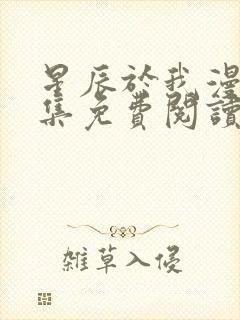 星辰於我漫
集免費閱讀
雜草入侵